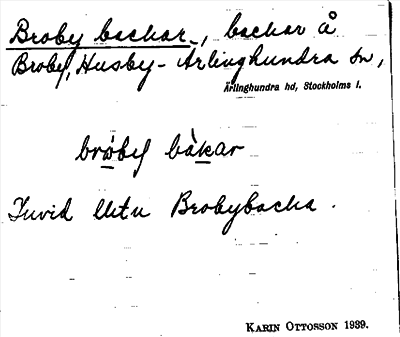 Broby backar, backar å
Broby, Husby-Ärlinghundra sn,
Ärlinghundra hd, Stockholms l.
brȯby bàkar
Invid Brobybacka.
KARIN OTTOSSON 1939.